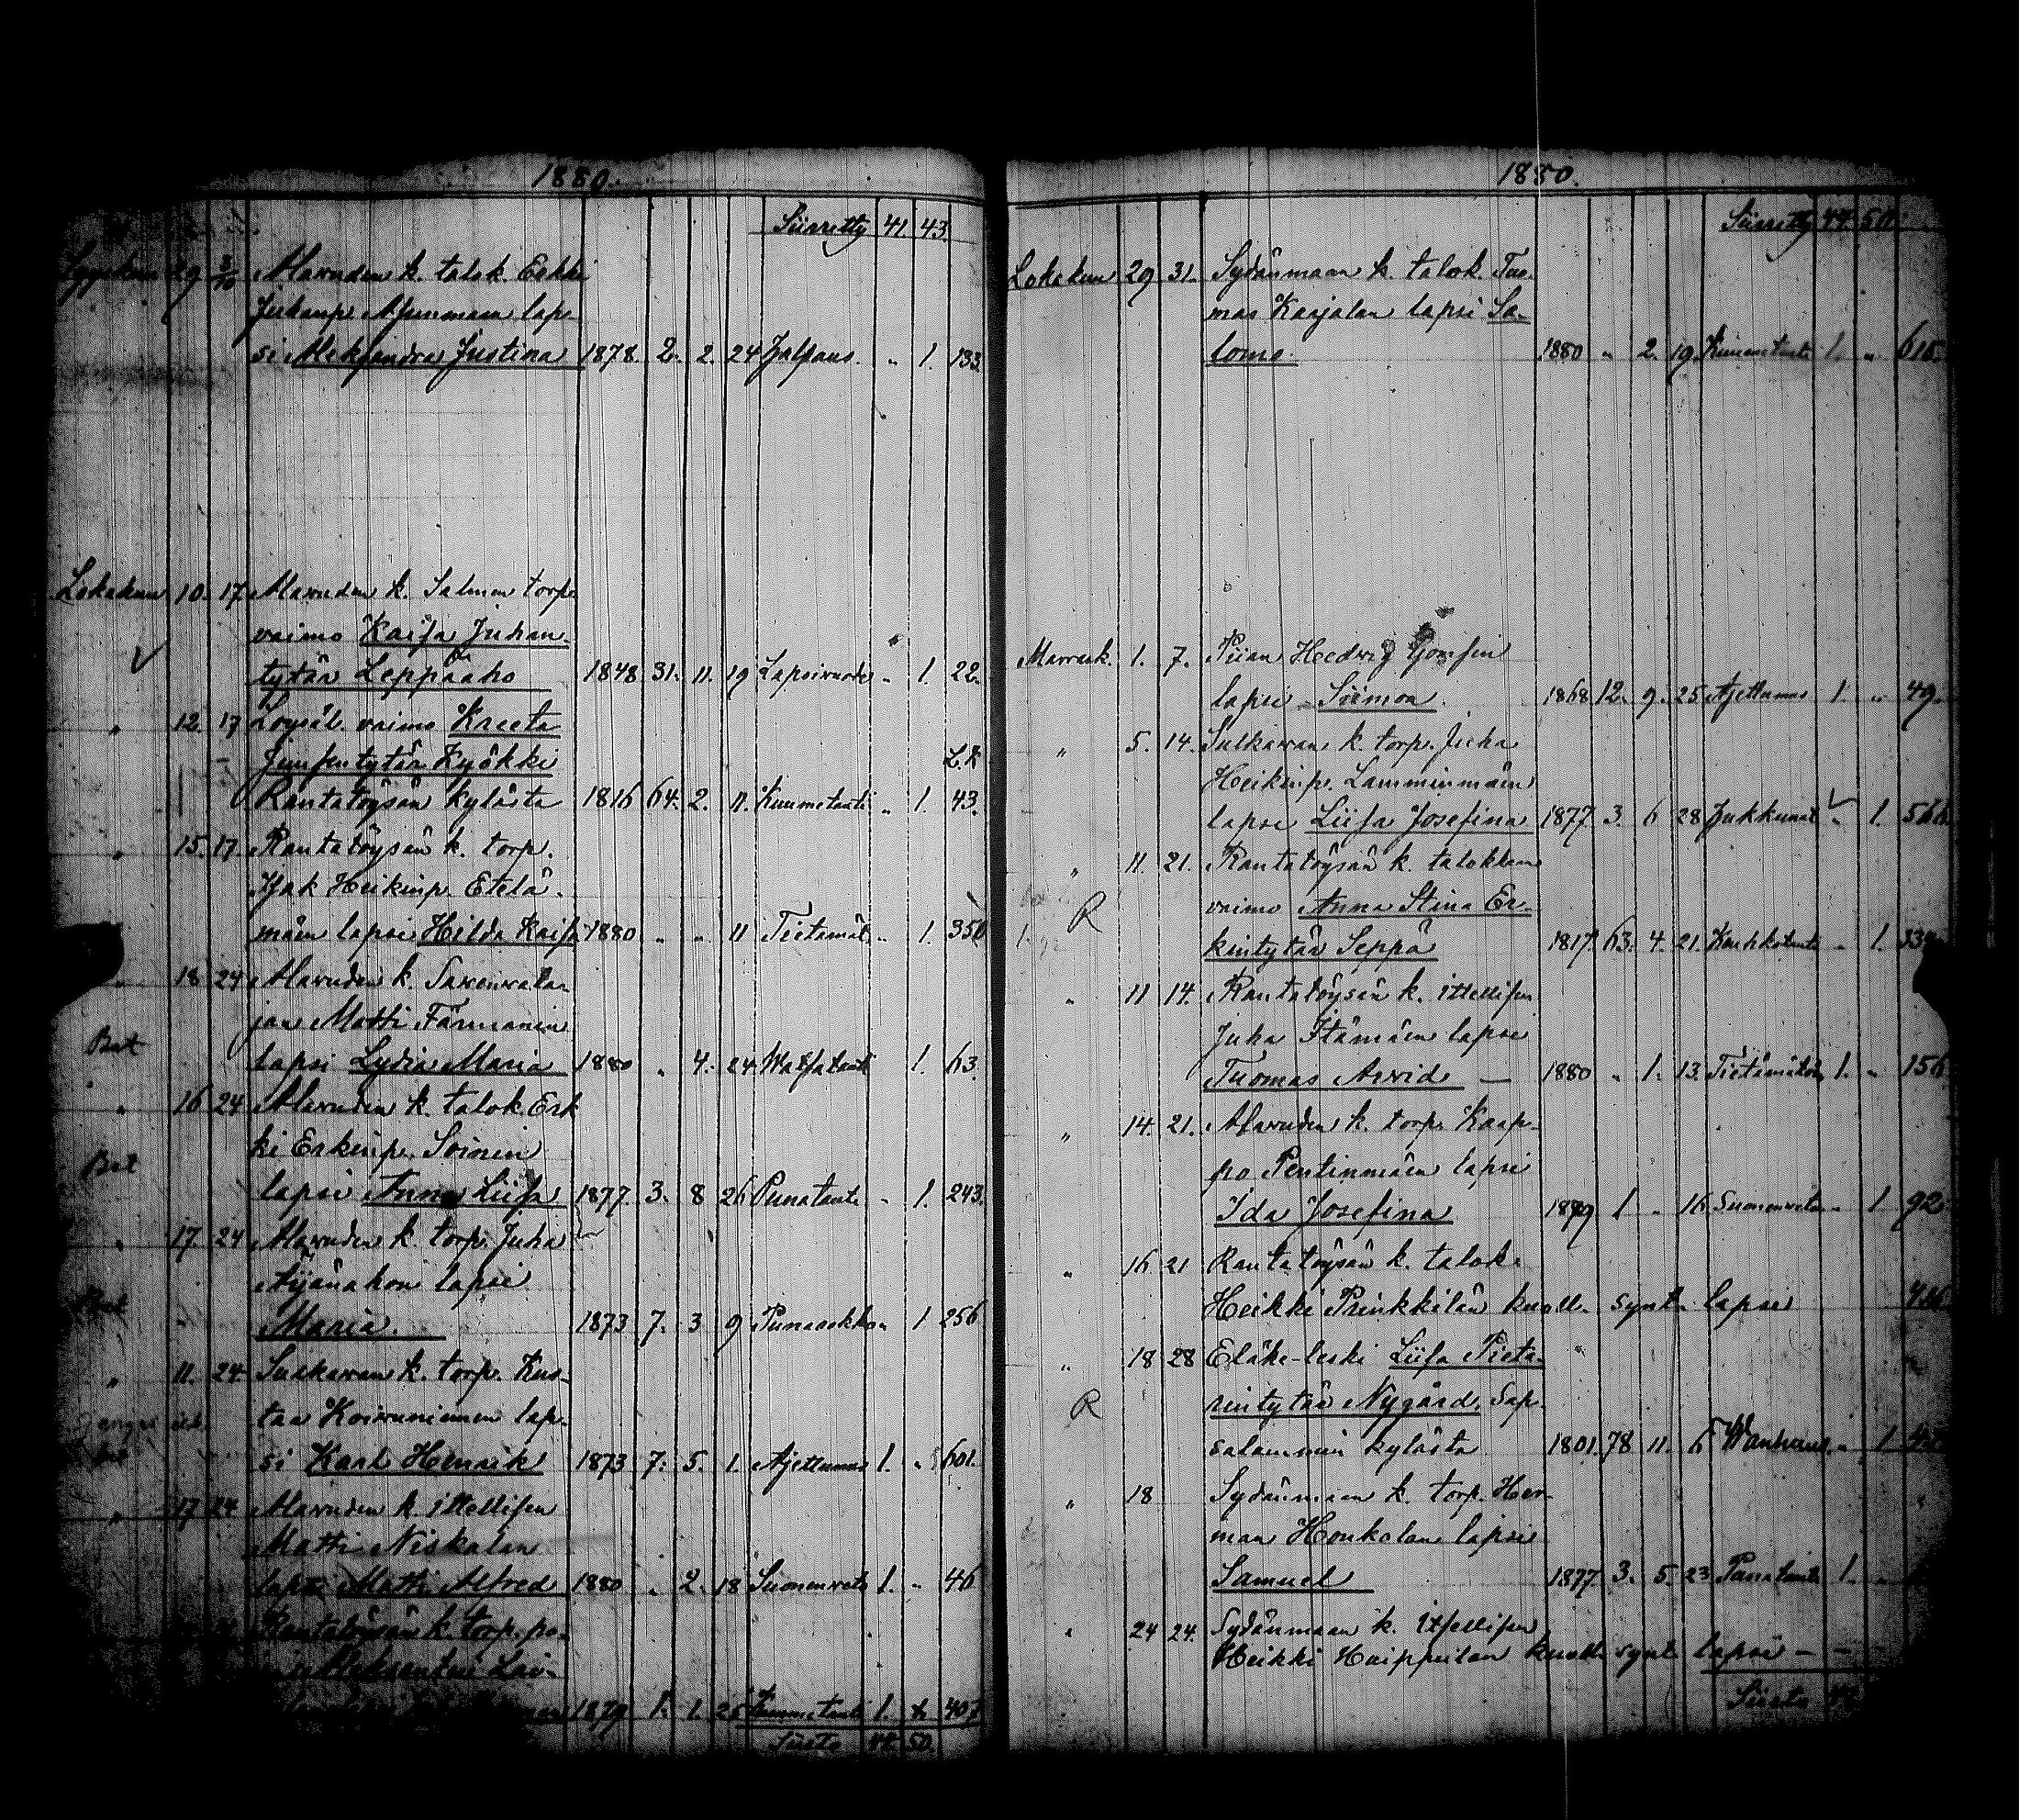 1880.
Siirretty 41. 43.
Syyskuu 29 3/10 Alavuden k. talok. Erkki
Juhanp. Asunmaan lap-
si Aleksandra Justina 1878. 2. 2. 24 „ 1. 133.
Lokakuu 10. 17 Alavuden k. Salmen torp.
vaimo Kaisa Juhan-
tytär Leppäaho 1848 31. 11. 19 Lapsivuode „ 1. 22.
„ 12. 17 Loysäl. vaimo Kreeta
Juusentytär Kyökki L.K
Rantatöysän kylästä 1816 64. 2. 11. Kuumetauti „ 1. 43.
„ 15. 17 Rantatöysän k. torp.
Isak Heikinp. Etelä-
mäen lapsi Hilda Kaisa 1880 „ „ 11 Tietämät. „ 1. 350
„ 18 24 Alavuden k. Sarenvala-
jan Matti Färmanin
Bat
lapsi Lydia Maria 1880 „ 4. 24 1. 63.
„ 16 24 Alavuden k. talok. Erk
ki Erkinp. Soinin
Bat
lapsi Anna Liisa 1877. 3. 8 26 Punatauti „ 1. 243.
„ 17 24 Alavuden k. torp. Juha
Äijänahon lapsi
Maria. 1873 7. 3 9 1 256
„ 11. 24 Sulkavan k. torp. Kus-
taa Koivuniemen lap-
si Karl Henrik 1873 7. 5. 1. Ajettumus 1. „ 601.
„ 17 24 Alavuden k. ittellisen
Matti Niskalan
lapsi Matti Alfred 1880 „ 2. 18 Suonenveto 1. „ 46
Rantatöysän k. torp. po-
Aleksanteri Lai-
1879 1. 1. 25 Kuumetauti 1. 407
Siirto 44 50.
1880.
Siirretty 44. 50.
Lokakuu 29 31. Sydänmaan k. talok. Tuo-
mas Karjalan lapsi Sa-
lomo. 1880 „ 2. 19 Kuumetauti 1. „ 615.
Marrask. 1. 7. Piian Hedwig
lapsi Siimon 1868 12. 9. 25 Ajettumus 1. „ 49.
„ 5. 14. Sulkavan k. torp. Juha
Heikinp. Lamminmäen
lapsi Liisa Josefina 1877. 3. 6 28 „ 1. 566.
„ 11. 21. Rantatöysän k. talokkaan
R
vaimo Anna Stina Er-
kintytär Seppä 1817. 63. 4. 21. „ 1.
„ 11 14. Rantatöysän k. ittellisen
Juha Itämäen lapsi
Tuomas Arvid — 1880 „ 1. 13. Tietämätön 1. „ 156
„ 14. 21. Alavuden k. torp. Kaap-
po Pentinmäen lapsi
Ida Josefina 1879 1 „ 16 Suonenveto „ 1 92
„ 16 21 Rantatöysän k. talok.
Heikki Prinkkilän kuoll. synt. lapsi
„ 18 28 Eläke-leski Liisa Pieta-
R
rintytär Nygård, Sap-
salammin kylästä 1801. 78 11. 6 Wanhuus „ 1
„ 18 Sydänmaan k. torp. Her-
man Honkolan lapsi
Samuel 1877. 3. 5. 23 Punatauti 1.
„ 24 24. Sydänmaan k. itsellisen
Heikki Huippulan kuoll. synt. lapsi — —
Siirto